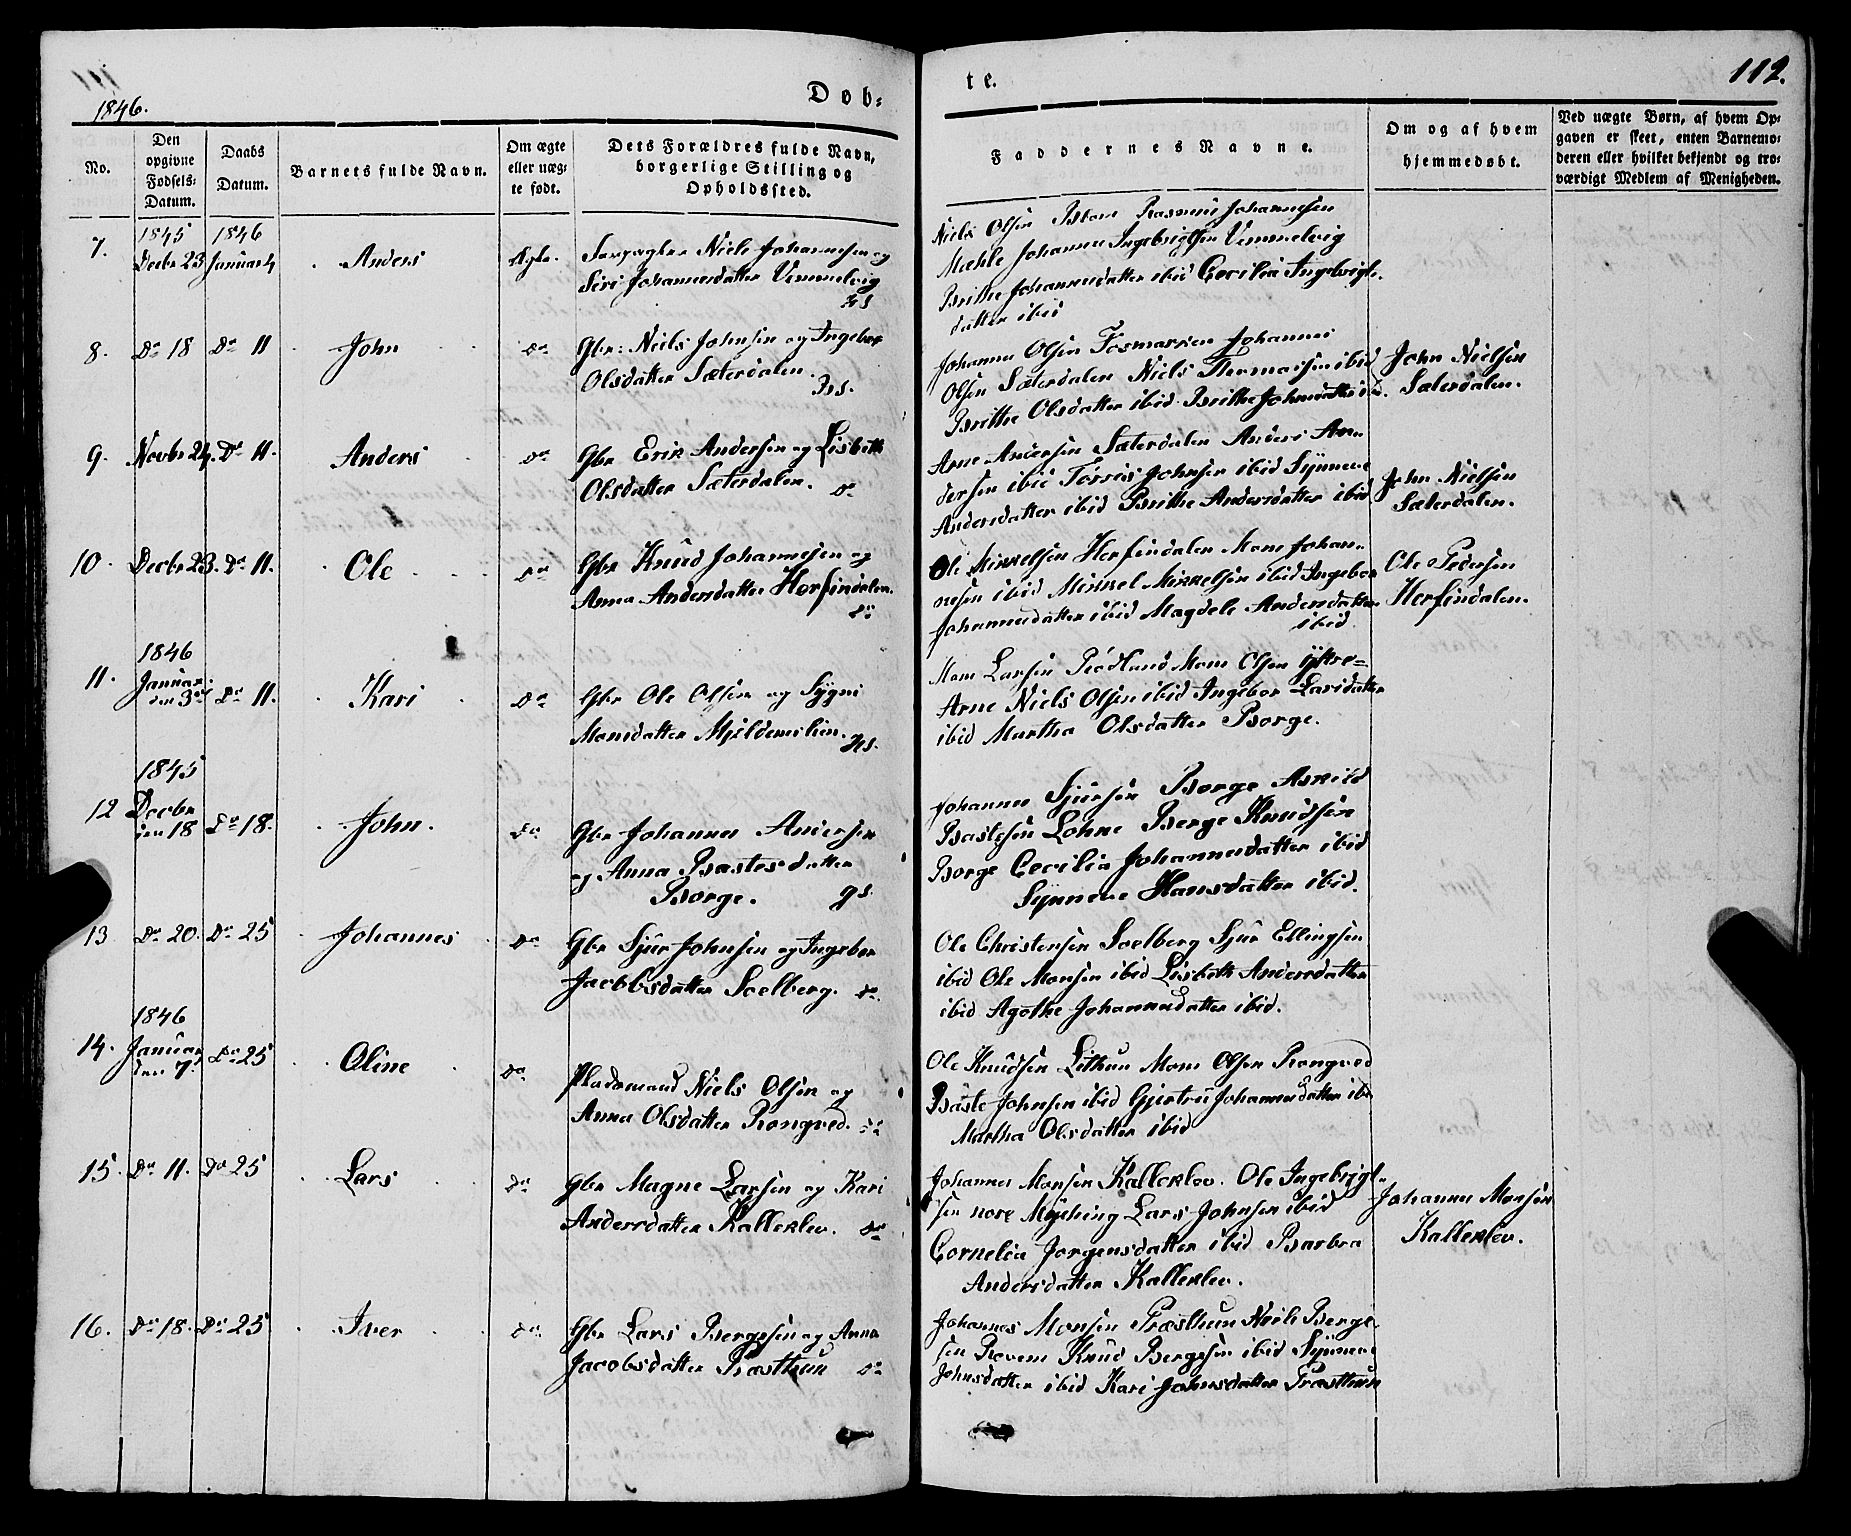 1846.
Døb-
te.
112.
No.
Den opgivne Fødsels-Datum.
Daabs Datum.
Barnets fulde Navn.
Om ægte eller uæg-te født.
Dets Forældres fulde Navn, borgerlige Stilling og Opholdssted.
Faddernes Navne.
Om og af hvem hjemmedøbt.
Ved uægte Børn, af hvem Op-
gaven er skeet, enten Barnemo-
deren eller hvilket bekjendt og tro-
værdigt Medlem af Menigheden.
7. 1845 Decbr 23 1846 Januar 4 Anders Ægte.
Niels Johannesen og
Siri Johannesdatter Vemmelvig
Niels Olsen Rasmus Johannesen
Mæhle Johannes Ingebrigtsen Vemmelvig
Brithe Johannesdatter ibid Cecilia Ingebrigts-
datter ibid
8. Do 18 Do 11 John Do
Gbr: Niels Johnsen og Ingebor
Olsdatter Sæterdalen. Hs.
Johannes Olsen Johannes
Olsen Sæterdalen Niels ibid
Brithe Olsdatter ibid Brithe
John Nielsen
Sæterdalen.
9. Novbr 24. Do 11. Anders Do
Gbr Erik Andersen og Lisbeth
Olsdatter Sæterdalen. Do
Arne Andersen Sæterdalen Anders An-
dersen ibid Torris Johnsen ibid Synneve
Andersdatter ibid Brithe Andersdatter ibid
John Nielsen
Sæterdalen.
10. Decbr 23. Do 11. Ole Do
Gbr Knud Johannesen og
Anna Andersdatter Herfindalen.
Do
Ole Mikkelsen Herfindalen Mons Johan-
nesen ibid Mikkel Mikkelsen ibid Ingebor
Johannesdatter ibid Magdele Andersdatter
ibid
Ole Pedersen
Herfindalen.
11. 1846 Januar den 3die Do 11. Kari Do
Gbr Ole Olsen og Sygni
Monsdatter Hs.
Mons Larsen Rødland Mons Olsen Yttre-
Arne Niels Olsen ibid Ingebor Larsdatter
ibid Martha Olsdatter Borge.
12 1845 Decbr den 18 Do 18. John. Do
Gbr Johannes Andersen
og Anna Bastesdatter
Borge. gs.
Johannes Sjursen Borge Askild
Bastesen Lohne Berge Knudsen
Borge Cecilia Johannesdatter ibid
Synneve Hansdatter ibid.
13 Do 20. Do 25 Johannes Do
Gbr Sjur Johnsen og Ingebor
Jacobsdatter Soelberg. Do.
Ole Christensen Soelberg Sjur Ellingsen
ibid Ole Monsen ibid Lisbeth Andersdatter
ibid Agothe Johannesdatter ibid.
14. 1846 Januar den 7. Do 25 Oline Do
Pladsmand Niels Olsen og
Anna Olsdatter Rongved. Do
Ole Knudsen Lithun Mons Olsen Rongved
Baste Johnsen ibid Gjertru Johannesdatter ibd
Martha Olsdatter ibid
15. Do 11. Do 25 Lars Do
Gbr Magne Larsen og Kari
Andersdatter Kalleklev. Do
Johannes Monsen Kalleklev. Ole Ingebrigt-
sen nore Myhing Lars Johnsen ibid
Cornelia Jørgensdatter ibid Barbra
Andersdatter Kalleklev.
Johannes Monsen
Kalleklev.
16. Do 18. Do 25 Iver Do.
Gbr Lars Bergesen og Anna
Jacobsdatter Præsthun Do
Johannes Monsen Præsthun Niels Berge-
sen Revem Knud Bergesen ibid Synneve
Johnsdatter ibid Kari Johnsdatter Præsthun